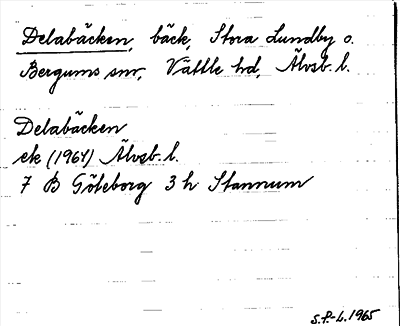 Delabäcken, bäck, Stora Lundby o.
Bergums snr, Vättle hd, Älvsb. l.
Delabäcken
ek (1961) Älvsb. l.
7 B Göteborg 3 h Stannum
S.P-L. 1965